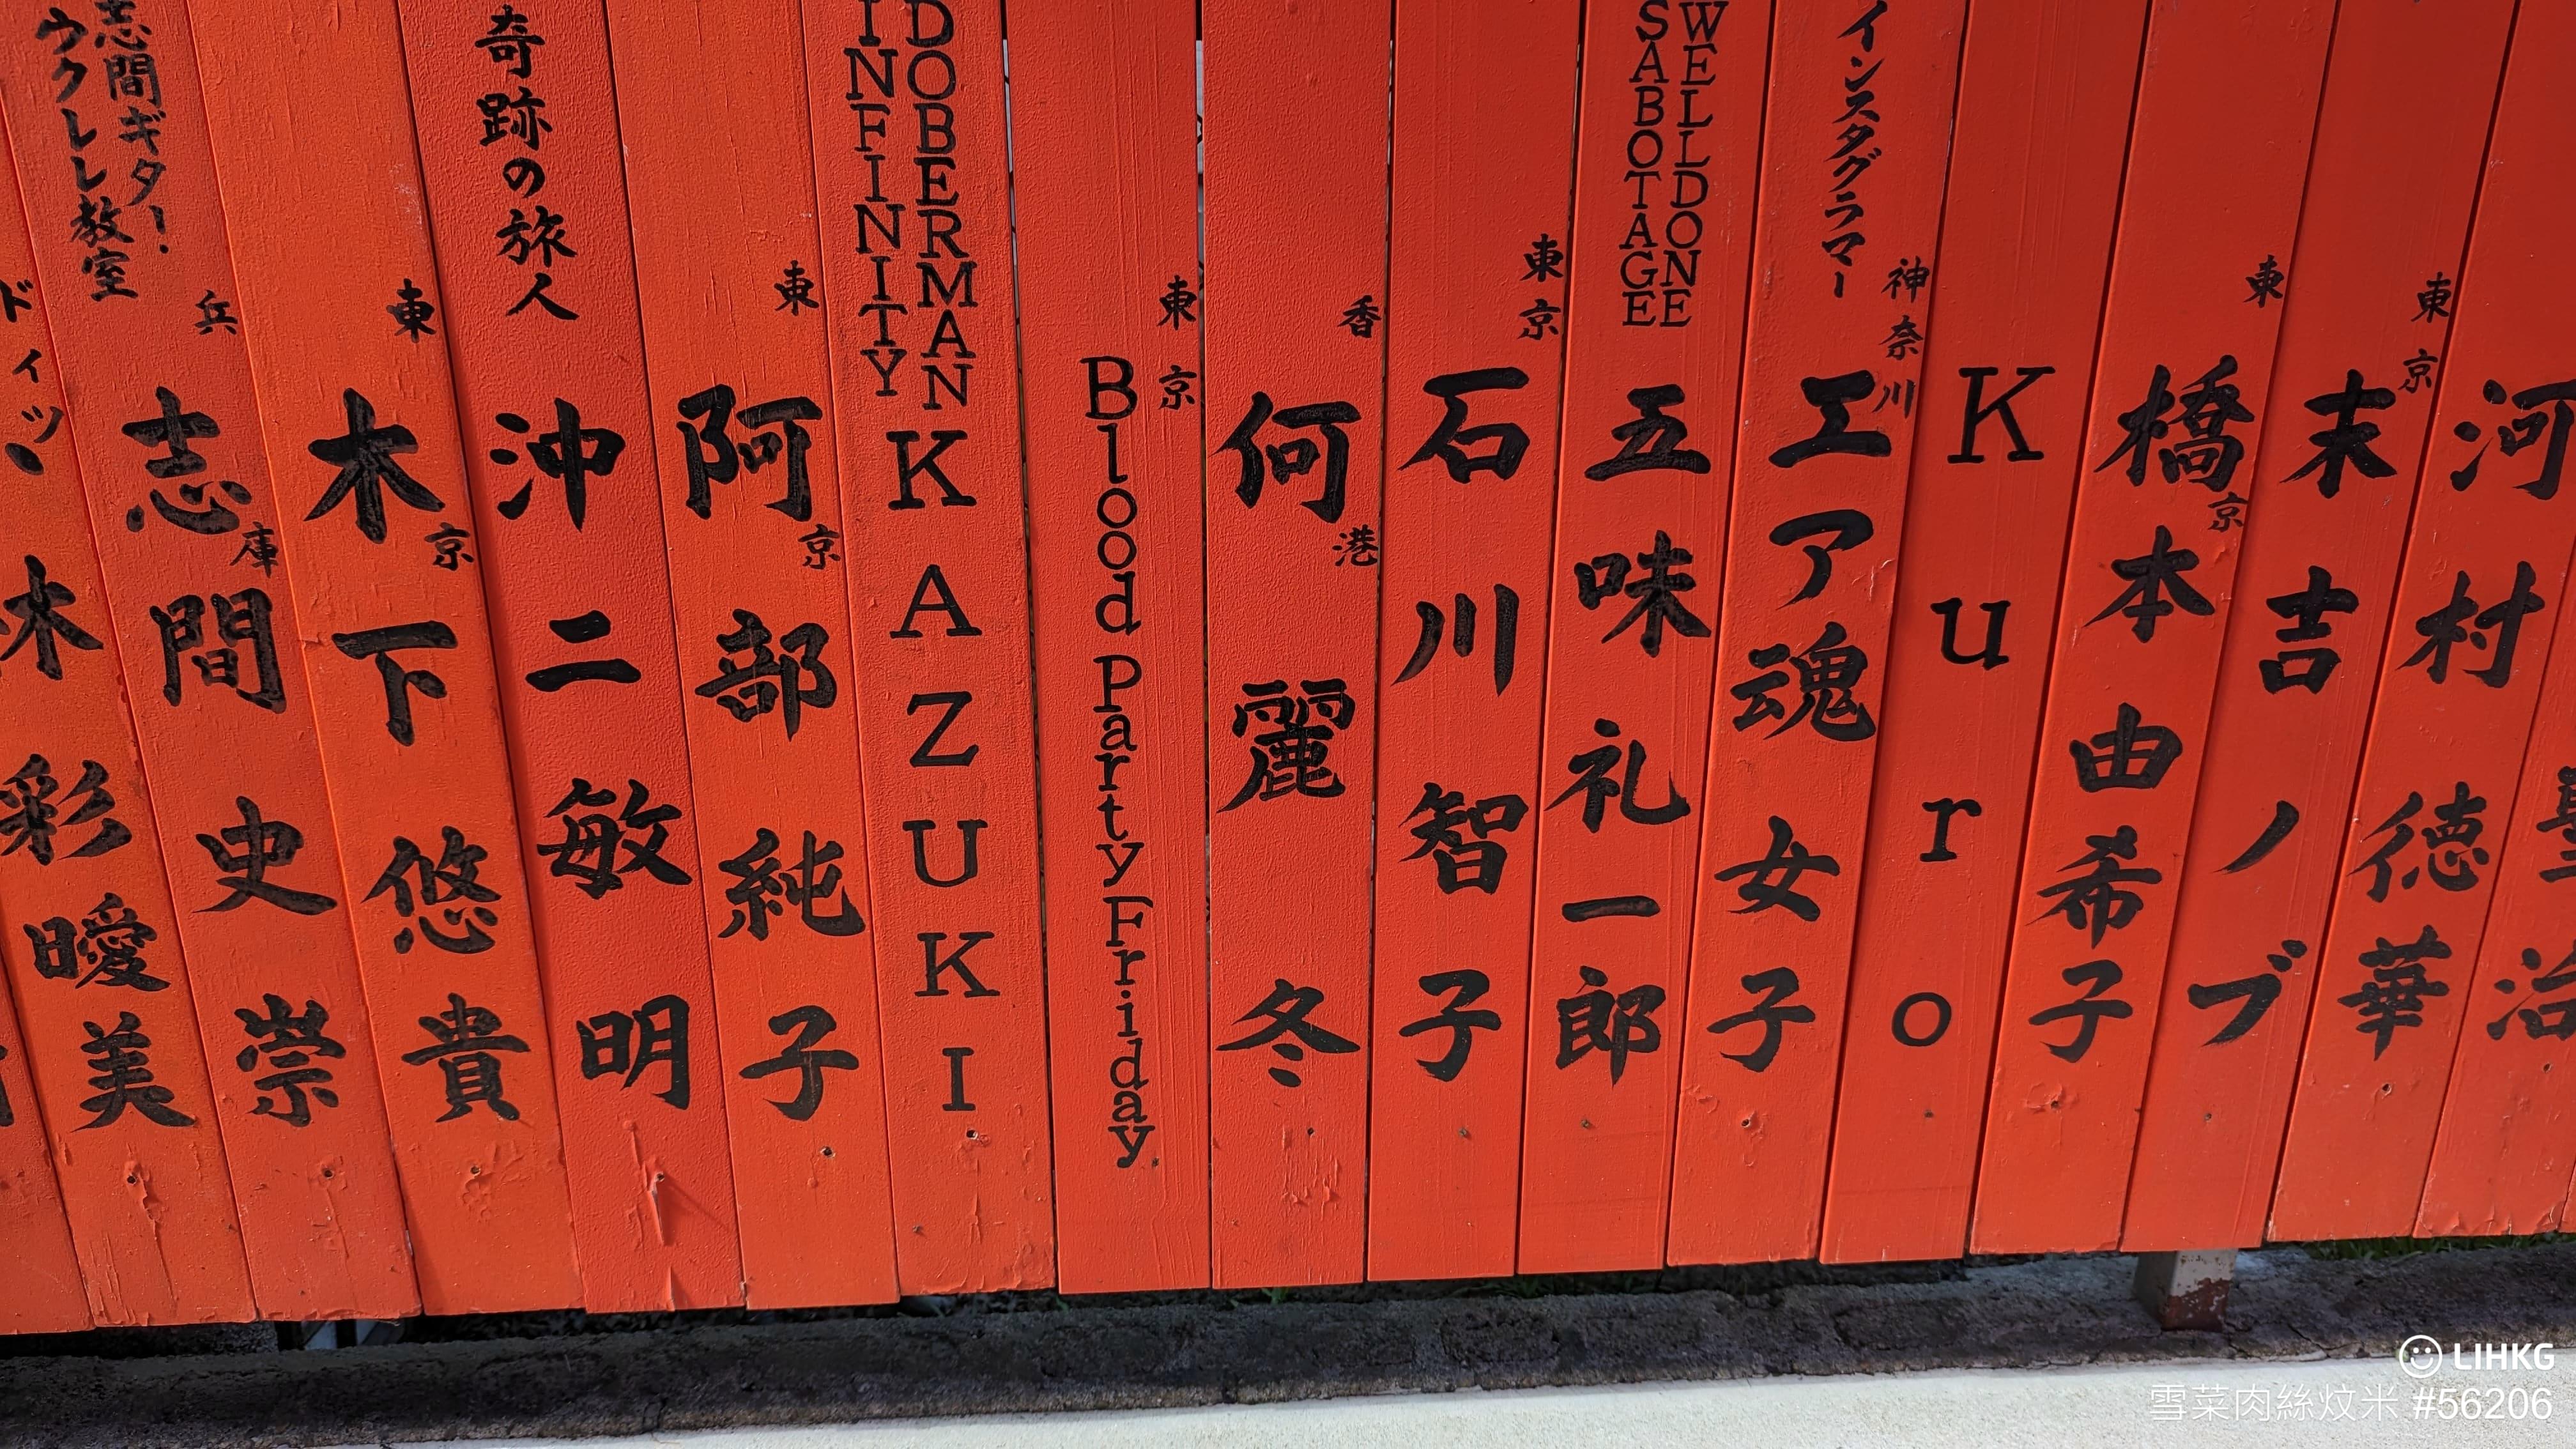 河村徳華
東京
末吉ノブ
東京
橋本由希子
Kuro
神奈川
インスタグラマー
エア魂女子
WELLDONE
SABOTAGE
五味礼一郎
東京
石川智子
香港
何麗冬
東京
Blood Party Friday
DOBERMAN
INFINITY
KAZUKI
東京
阿部純子
奇跡の旅人
沖二敏明
東京
木下悠貴
兵庫
志間ギター・
ウクレレ教室
志間史崇
ドイツ
木彩曖美
LIHKG
雪菜肉絲炆米 #56206